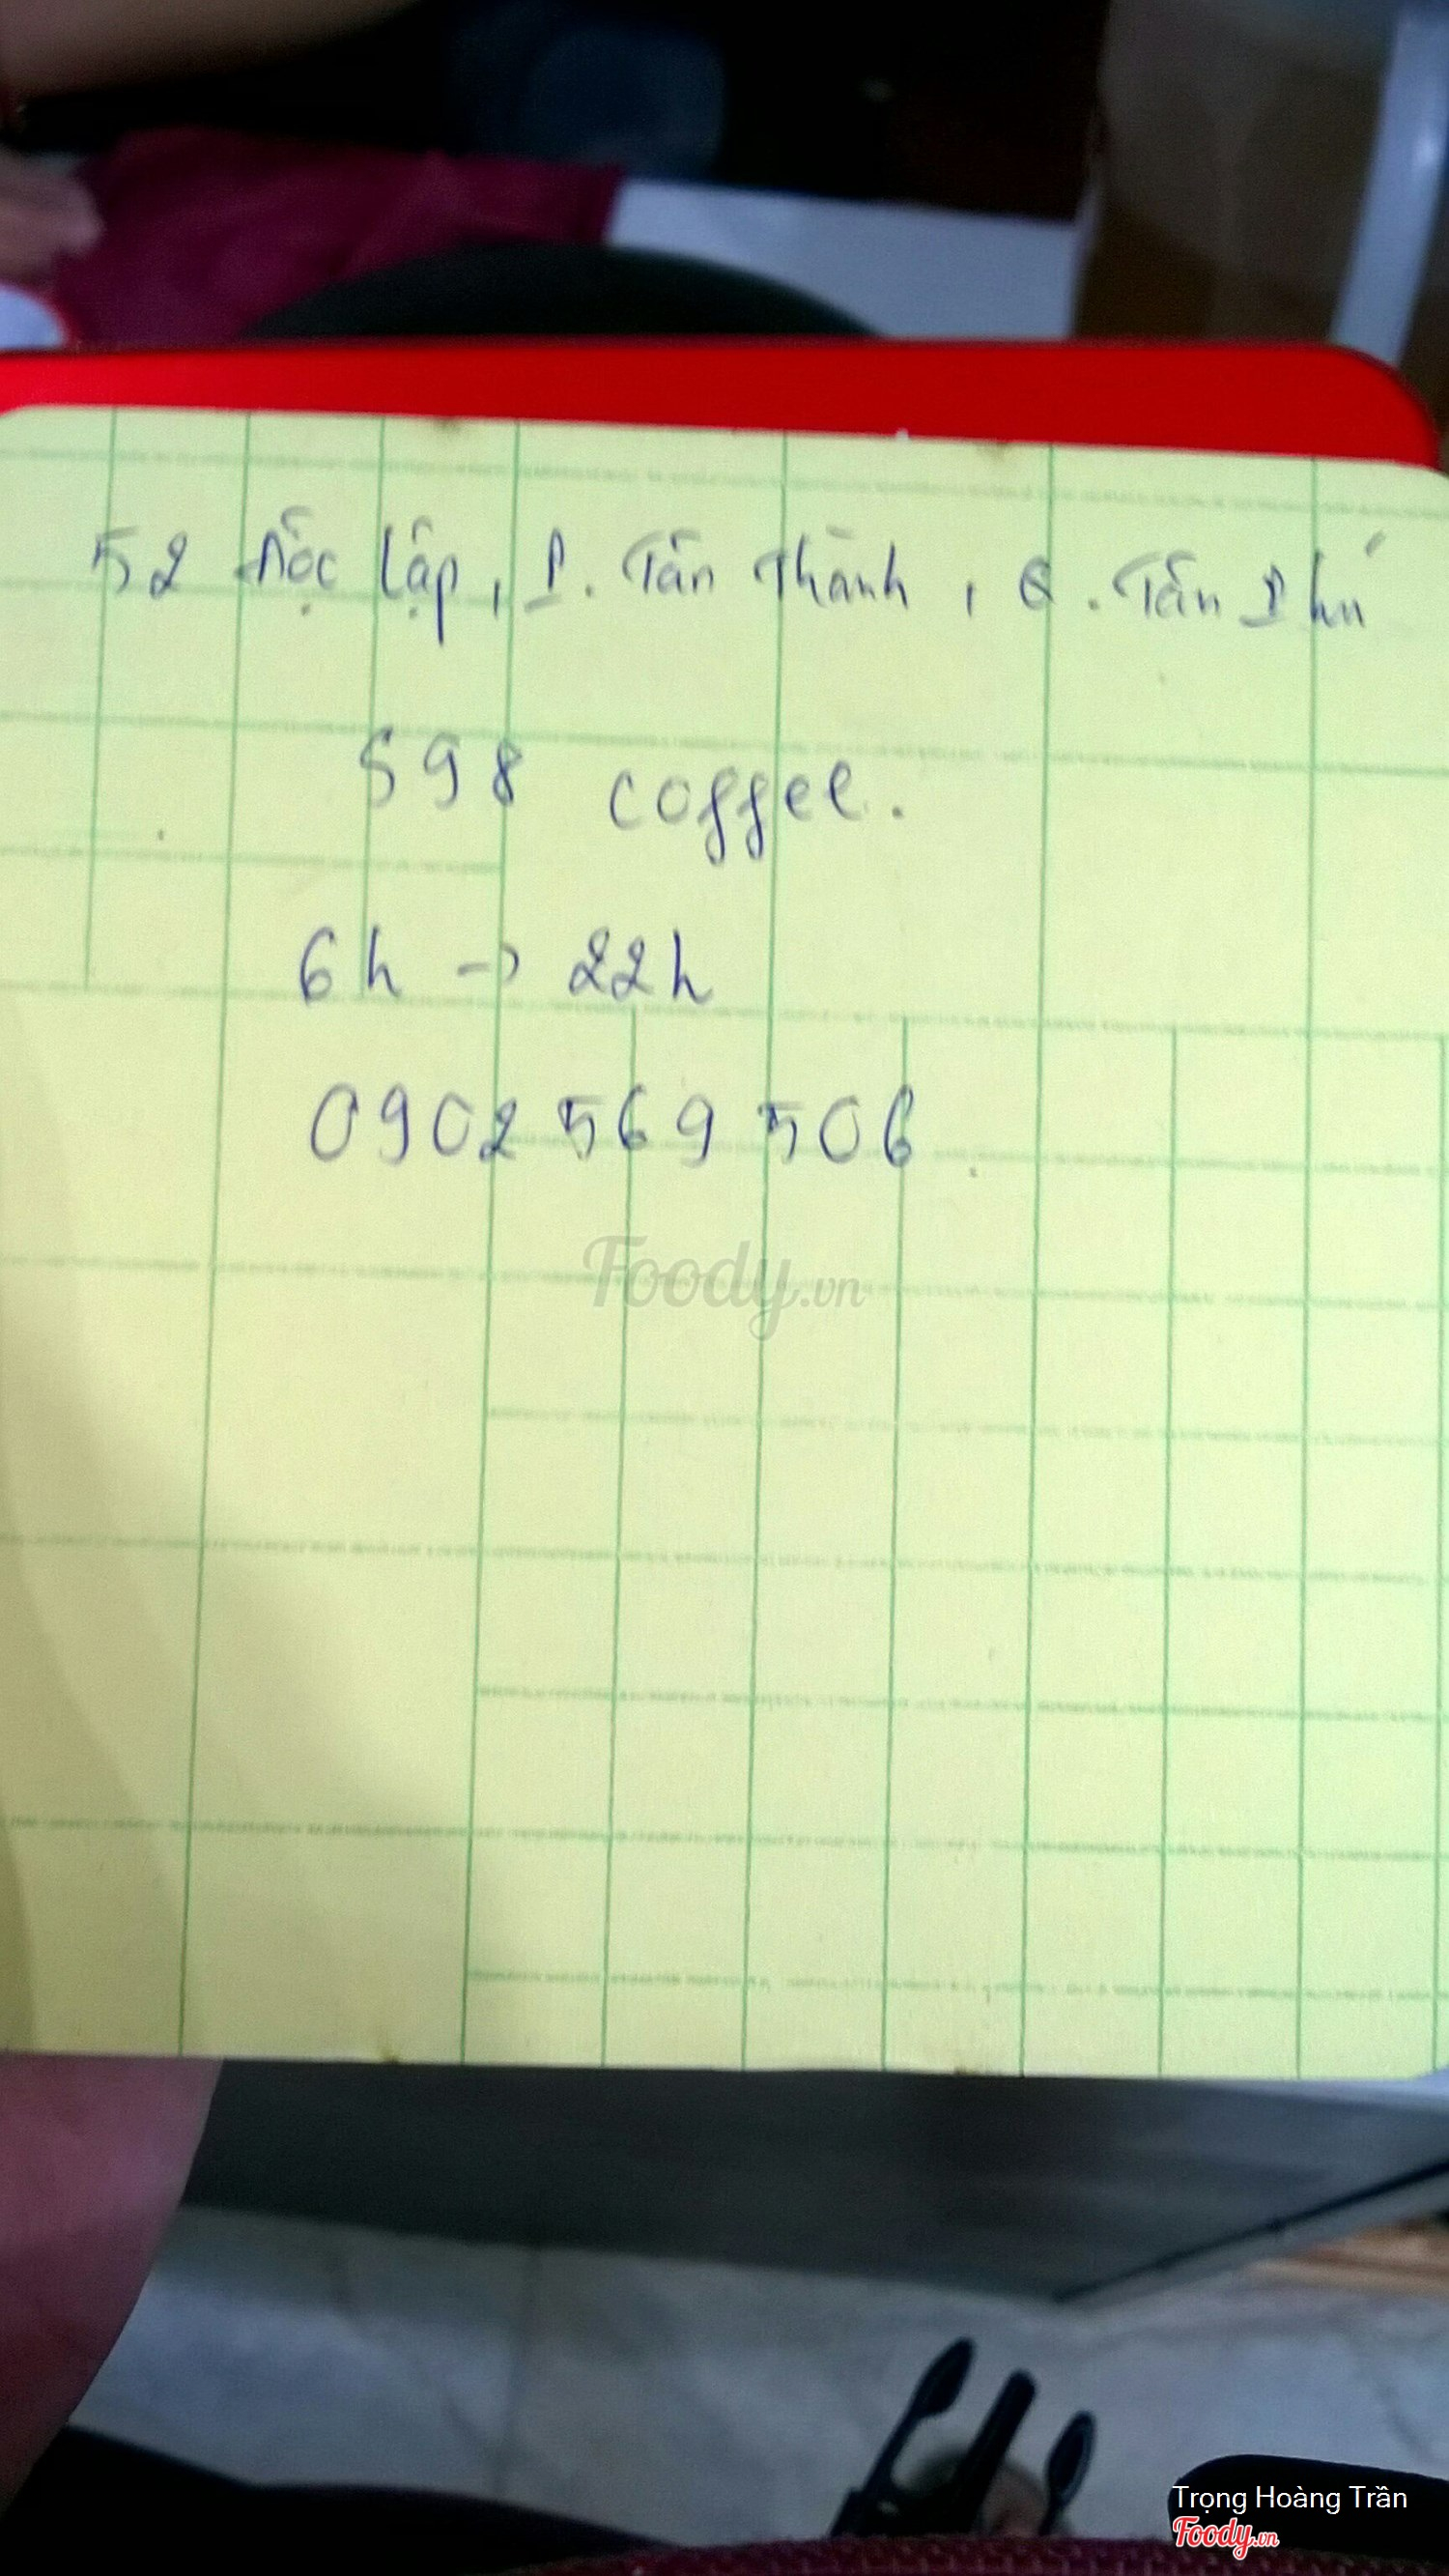 52 Độc Lập, P. Tân Thành, Q. Tân Phú
598 coffee.
6h -> 22h
0902 569 506
Foody.vn
Trọng Hoàng Trần
Foody.vn